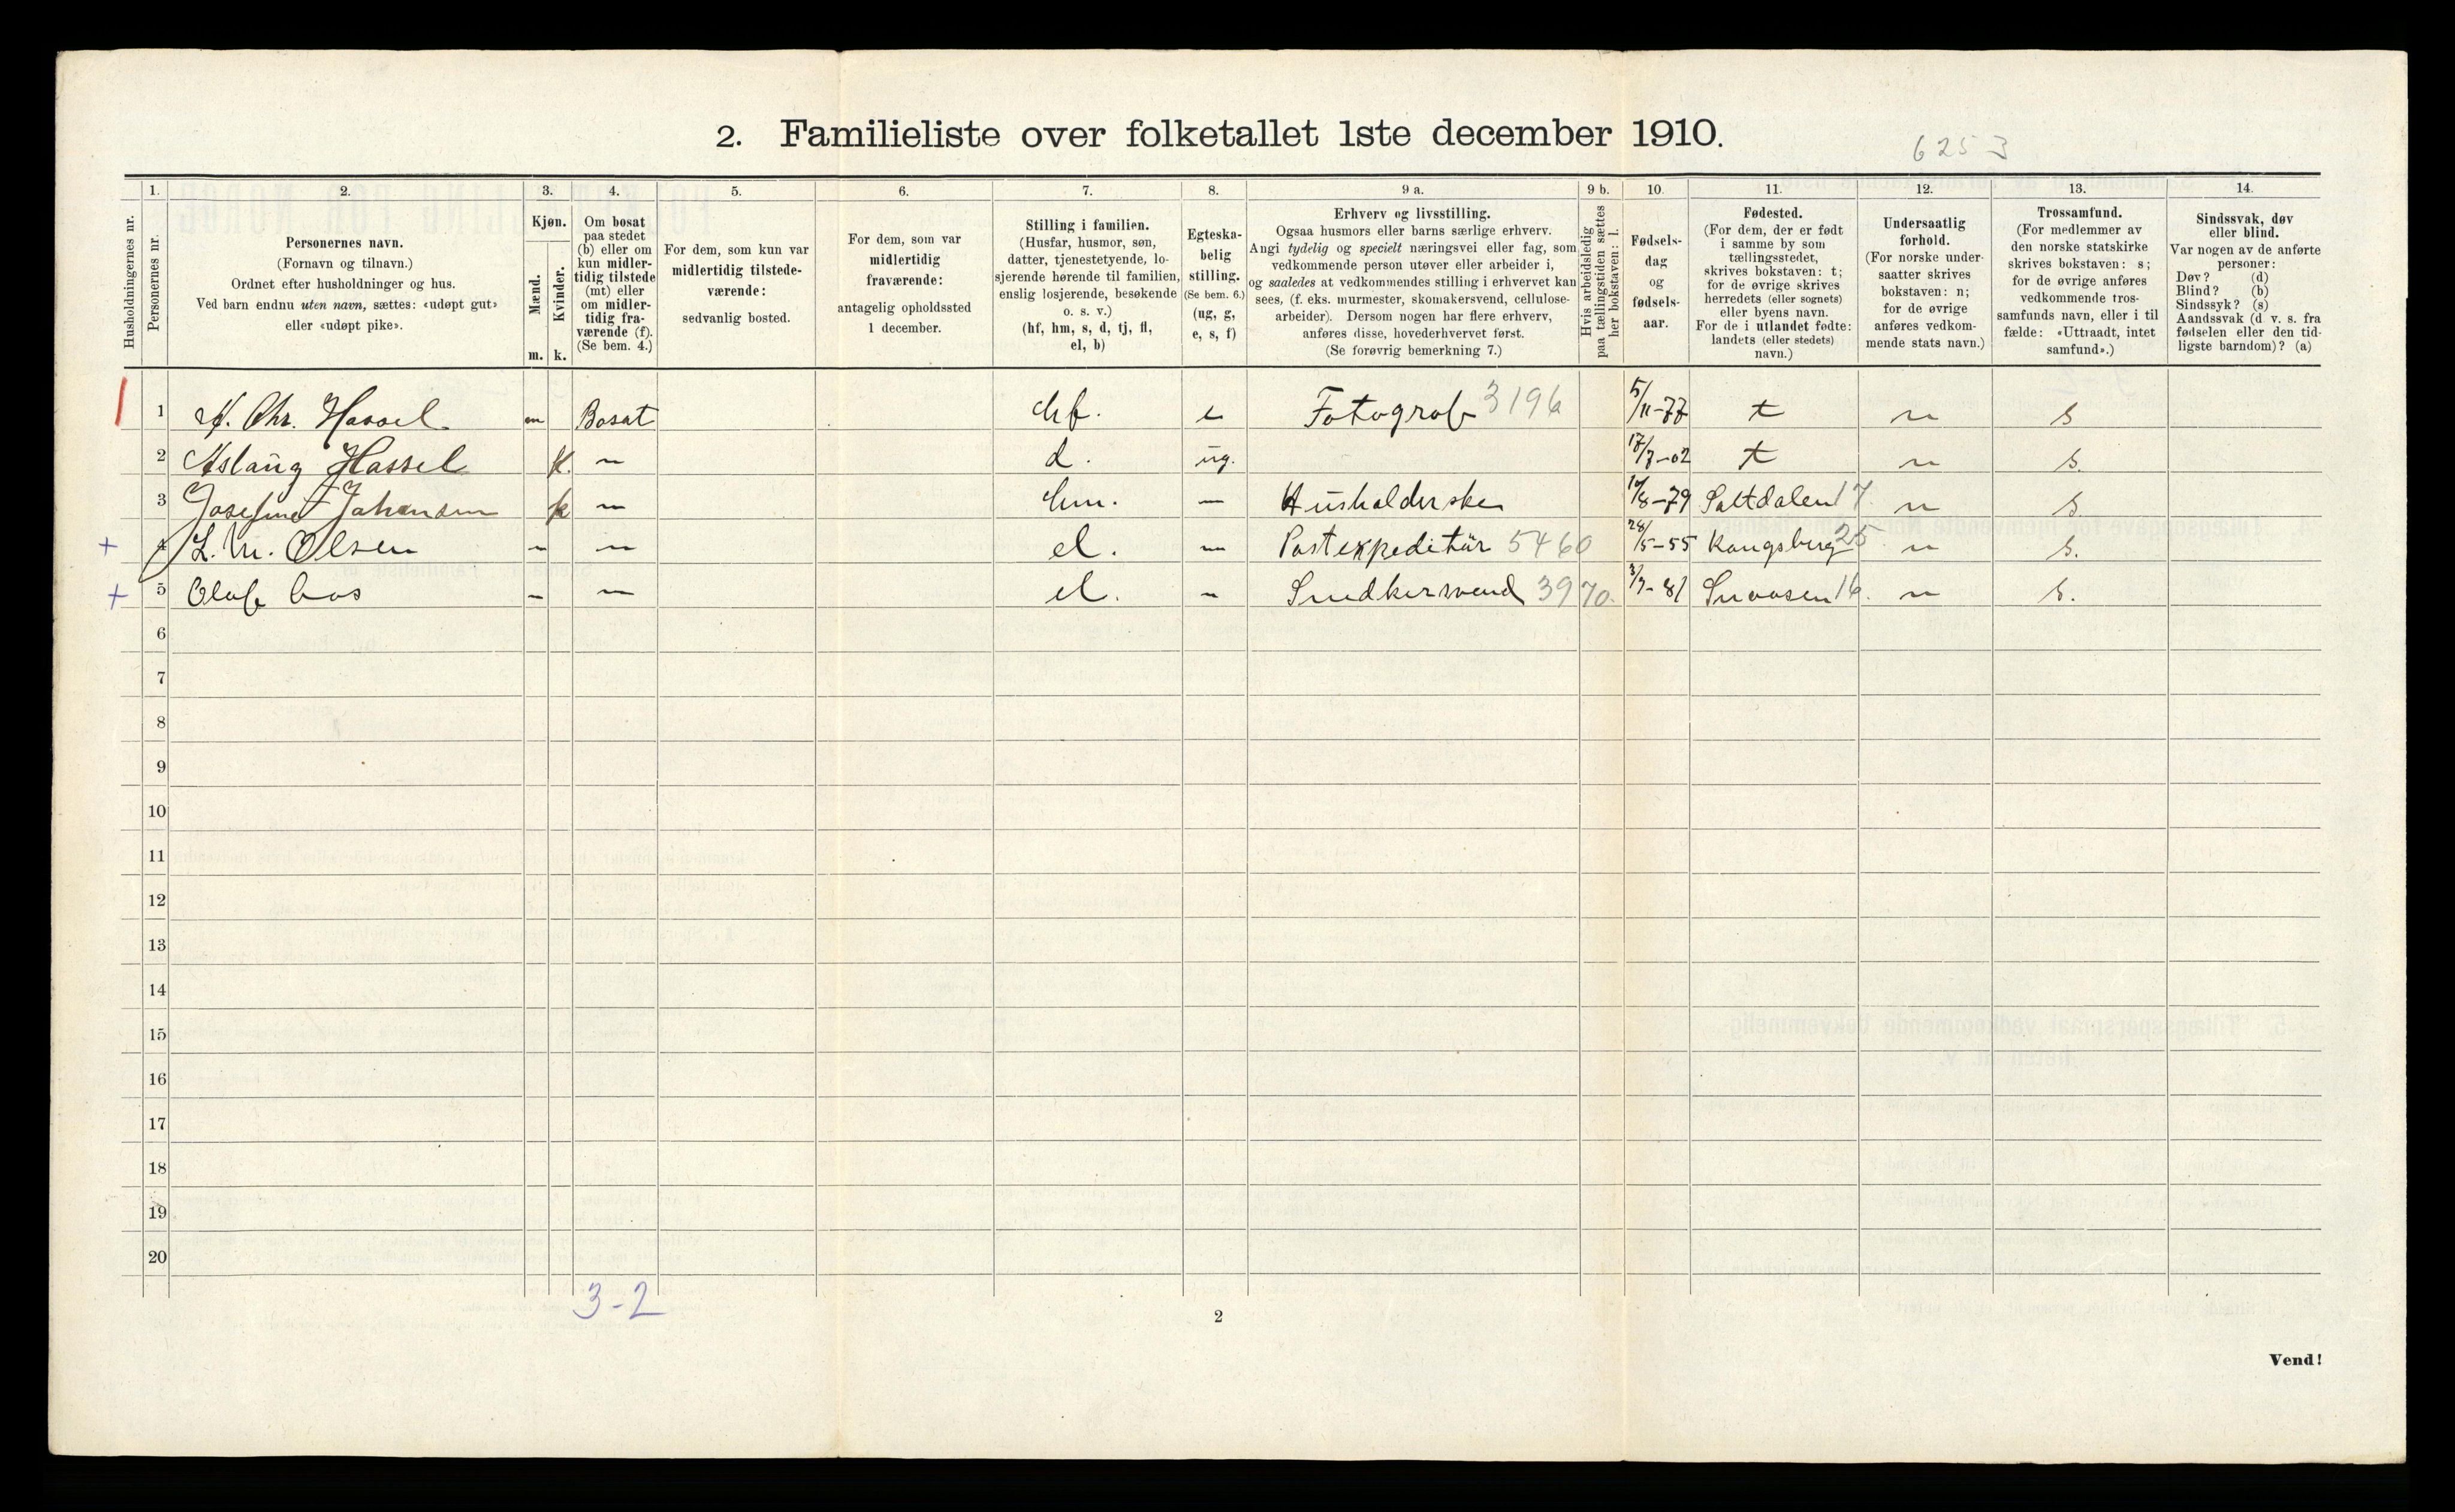 2. Familieliste over folketallet 1ste december 1910.
6253
1. 2. 3. 4. 5. 6. 7. 8. 9 a. 9 b. 10. 11. 12. 13. 14.
Husholdningernes nr.
Personernes nr.
Personernes navn.
(Fornavn og tilnavn.)
Ordnet efter husholdninger og hus.
Ved barn endnu uten navn, sættes: «udøpt gut»
eller «udøpt pike».
Kjøn.
Mænd.
Kvinder.
m. k.
Om bosat
paa stedet
(b) eller om
kun midler-
tidig tilstede
(mt) eller
om midler-
tidig fra-
værende (f).
(Se bem. 4.)
For dem, som kun var
midlertidig tilstede-
værende:
sedvanlig bosted.
For dem, som var
midlertidig
fraværende:
antagelig opholdssted
1 december.
Stilling i familien.
(Husfar, husmor, søn,
datter, tjenestetyende, lo-
sjerende hørende til familien,
enslig losjerende, besøkende
o. s. v.)
(hf, hm, s, d, tj, fl,
el, b)
Egteska-
belig
stilling.
(Se bem. 6.)
(ug, g,
e, s, f)
Erhverv og livsstilling.
Ogsaa husmors eller barns særlige erhverv.
Angi tydelig og specielt næringsvei eller fag, som
vedkommende person utøver eller arbeider i,
og saaledes at vedkommendes stilling i erhvervet kan
sees, (f. eks. murmester, skomakersvend, cellulose-
arbeider). Dersom nogen har flere erhverv,
anføres disse, hovederhvervet først.
(Se forøvrig bemerkning 7.)
Hvis arbeidsledig
paa tællingstiden sættes
her bokstaven: l.
Fødsels-
dag
og
fødsels-
aar.
Fødested.
(For dem, der er født
i samme by som
tællingsstedet,
skrives bokstaven: t;
for de øvrige skrives
herredets (eller sognets)
eller byens navn.
For de i utlandet fødte:
landets (eller stedets)
navn.)
Undersaatlig
forhold.
(For norske under-
saatter skrives
bokstaven: n;
for de øvrige
anføres vedkom-
mende stats navn.)
Trossamfund.
(For medlemmer av
den norske statskirke
skrives bokstaven: s;
for de øvrige anføres
vedkommende tros-
samfunds navn, eller i til
fælde: «Uttraadt, intet
samfund».)
Sindssvak, døv
eller blind.
Var nogen av de anførte
personer:
Døv? (d)
Blind? (b)
Sindssyk? (s)
Aandssvak (d v. s. fra
fødselen eller den tid-
ligste barndom)? (a)
1 Chr. Hassel m Bosat hf. e Fotograf 3196 5/11-77 t n s
2 Aslaug Hassel k. — d. ug. 17/7-02 t n s.
3 Josefine Johansen k — hm. — Husholderske 10/8-79 Saltdalen 17. n s
+ 4 L. M. Olsen — — el. — Postexpeditør 5460 28/5-55 Kongsberg 25 n s.
+ 5 Olaf Aas — — el. — Snedkersvend 3970. 3/7-81 Snaasen 16. n s.
6
7
8
9
10
11
12
13
14
15
16
17
18
19
20
3-2
2
Vend!